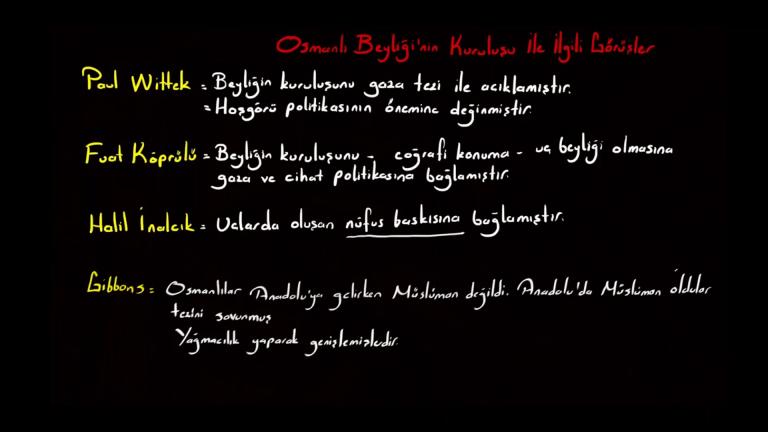 Osmanlı Beyliği'nin Kuruluşu İle İlgili Görüşler
Paul Wittek = Beyliğin kuruluşunu gaza tezi ile açıklamıştır.
= Hoşgörü politikasının önemine değinmiştir.
Fuat Köprülü = Beyliğin kuruluşunu - coğrafi konuma - uç beyliği olmasına
gaza ve cihat politikasına bağlamıştır.
Halil İnalcık = Uclarda oluşan nüfus baskısına bağlamıştır.
Gibbons = Osmanlılar Anadolu'ya gelirken Müslüman değildi. Anadolu'da Müslüman oldular
tezini savunmuş
Yağmacılık yaparak genişlemişlerdir.